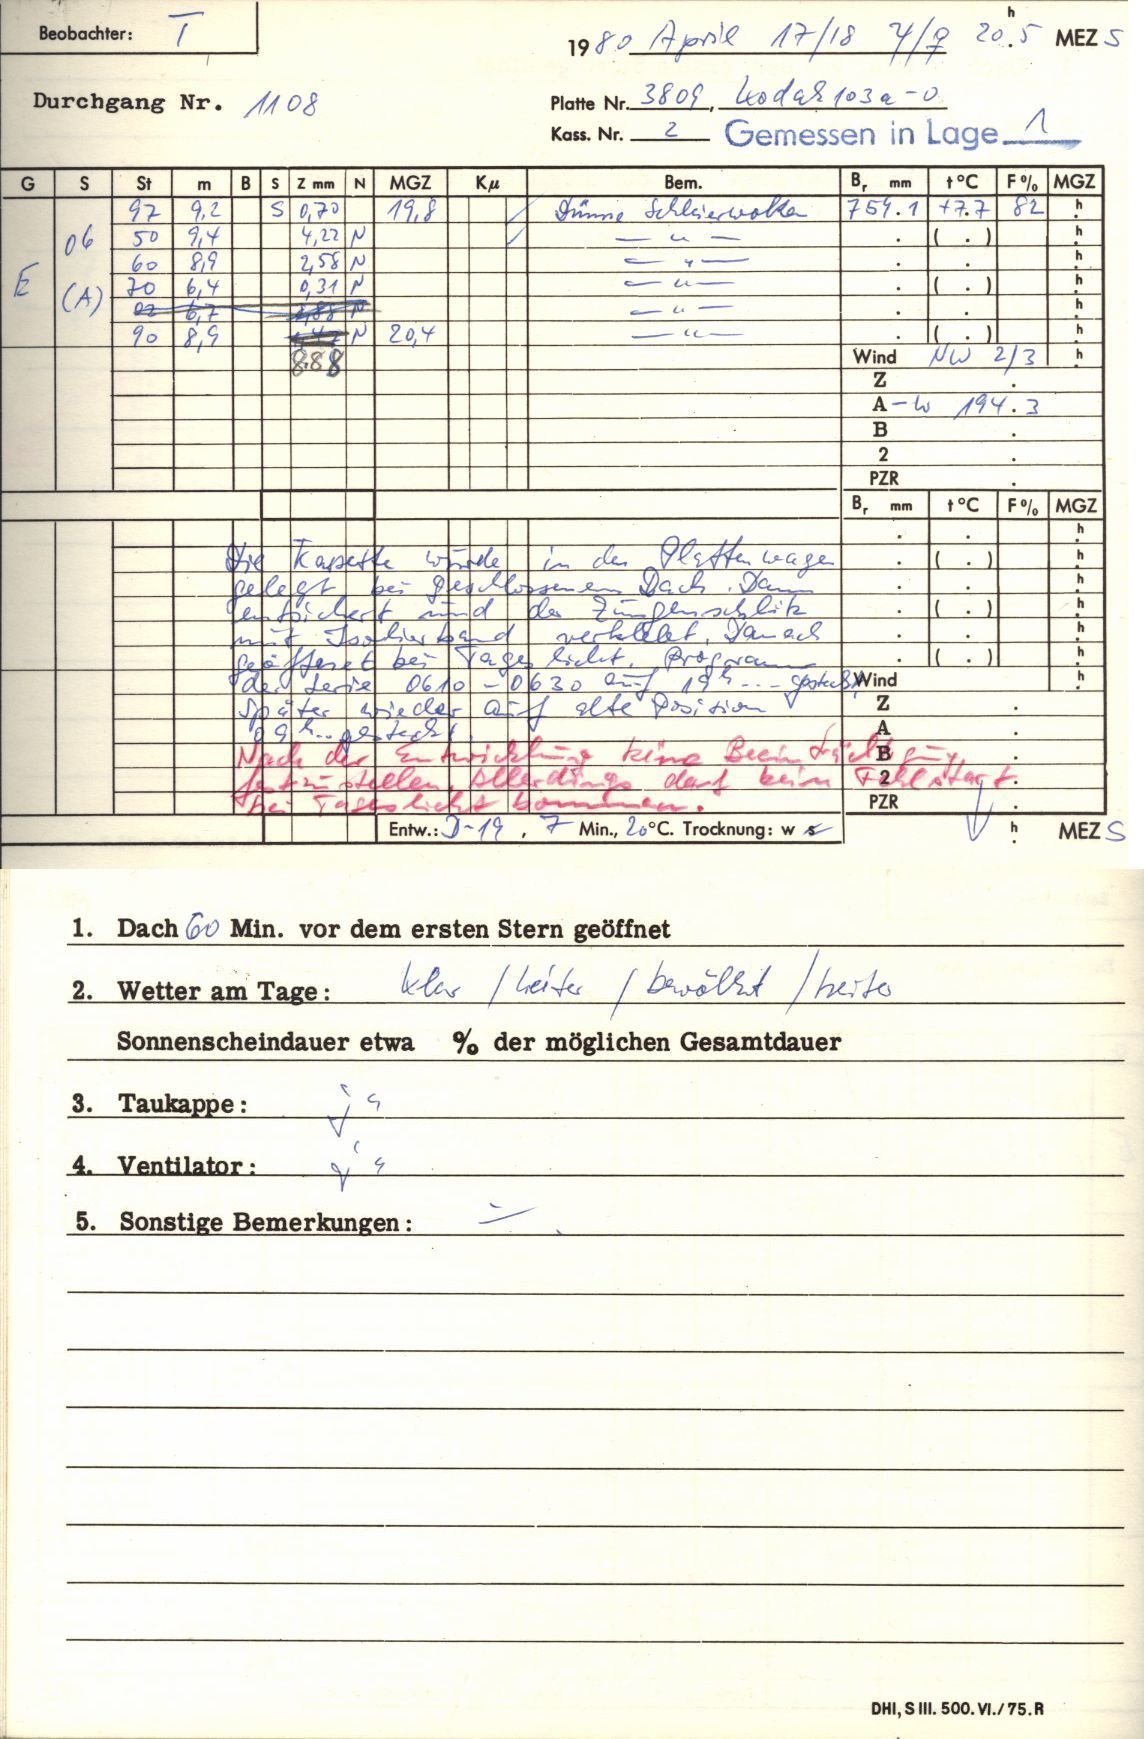 Beobachter: T
1980 April 17/18 20.5 h MEZ S
Durchgang Nr. 1108
Platte Nr. 3809, Kodak 103a-O
Kass. Nr. 2 Gemessen in Lage 1
G S St m B S Z mm N MGZ Kμ Bem. Br mm t °C F % MGZ
97 9,2 S 0,70 19,8 Dünne Schleierwolken 759.1 +7.7 82 h
06 50 9,4 4,22 N — " — . ( . ) h
60 8,9 2,58 N — " — . . h
E (A) 70 6,4 0,31 N — " — . ( . ) h
02 6,7 N — " — . . h
90 8,9 N 20,4 — " — . ( . ) h
8,88 Wind NW 2/3 h
Z .
A - W 194.3
B .
2 .
PZR .
Br mm t °C F % MGZ
. . h
Die Kassette wurde in den Plattenwagen . ( . ) h
gelegt bei geschlossenem Dach. Dann . . h
entsichert und der Zungenschlitz . ( . ) h
mit Isolierband verklebt. Danach . . h
geöffnet bei Tageslicht. Programm . ( . ) h
der Serie 0610 - 0630 auf 19h... gesteckt, Wind h
später wieder auf alte Position Z .
09h... gesteckt. A .
Nach der Entwicklung keine Beeinträchtigung B .
festzustellen. Allerdings darf kein Fehlstart 2 .
bei Tageslicht kommen. PZR .
Entw.: D-19, 7 Min., 20 °C. Trocknung: w s h MEZ S
1. Dach 60 Min. vor dem ersten Stern geöffnet
2. Wetter am Tage: klar / heiter / bewölkt / heiter
Sonnenscheindauer etwa % der möglichen Gesamtdauer
3. Taukappe: ja
4. Ventilator: ja
5. Sonstige Bemerkungen: ÷
DHI, S III. 500. VI./75. R